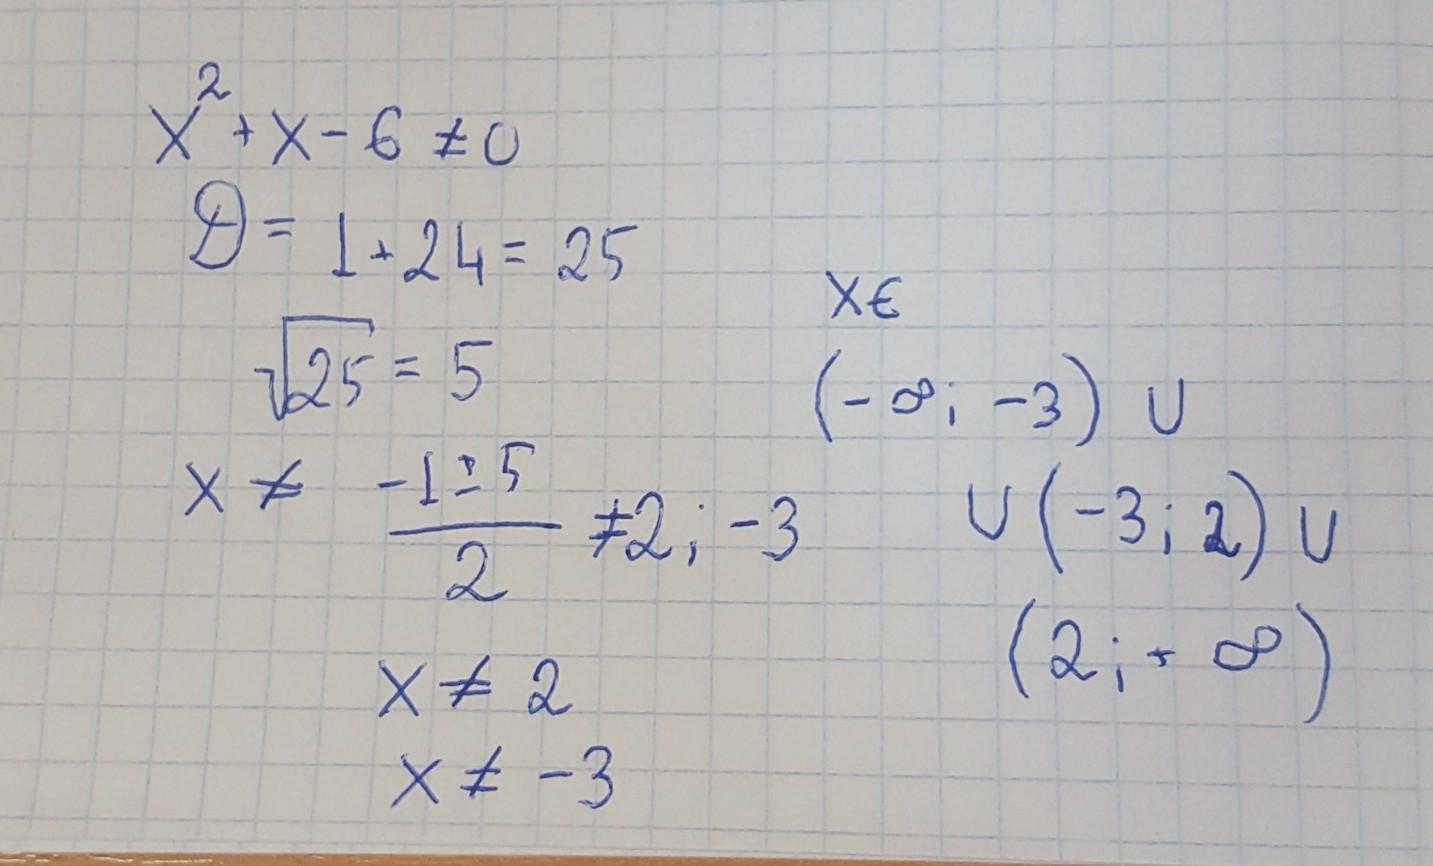 x² + x - 6 ≠ 0
D = 1 + 24 = 25
√25 = 5
x ≠ (-1 ± 5)/2 ≠ 2; -3
x ≠ 2
x ≠ -3
x ∈
(-∞; -3) ∪
∪ (-3; 2) ∪
(2; + ∞)